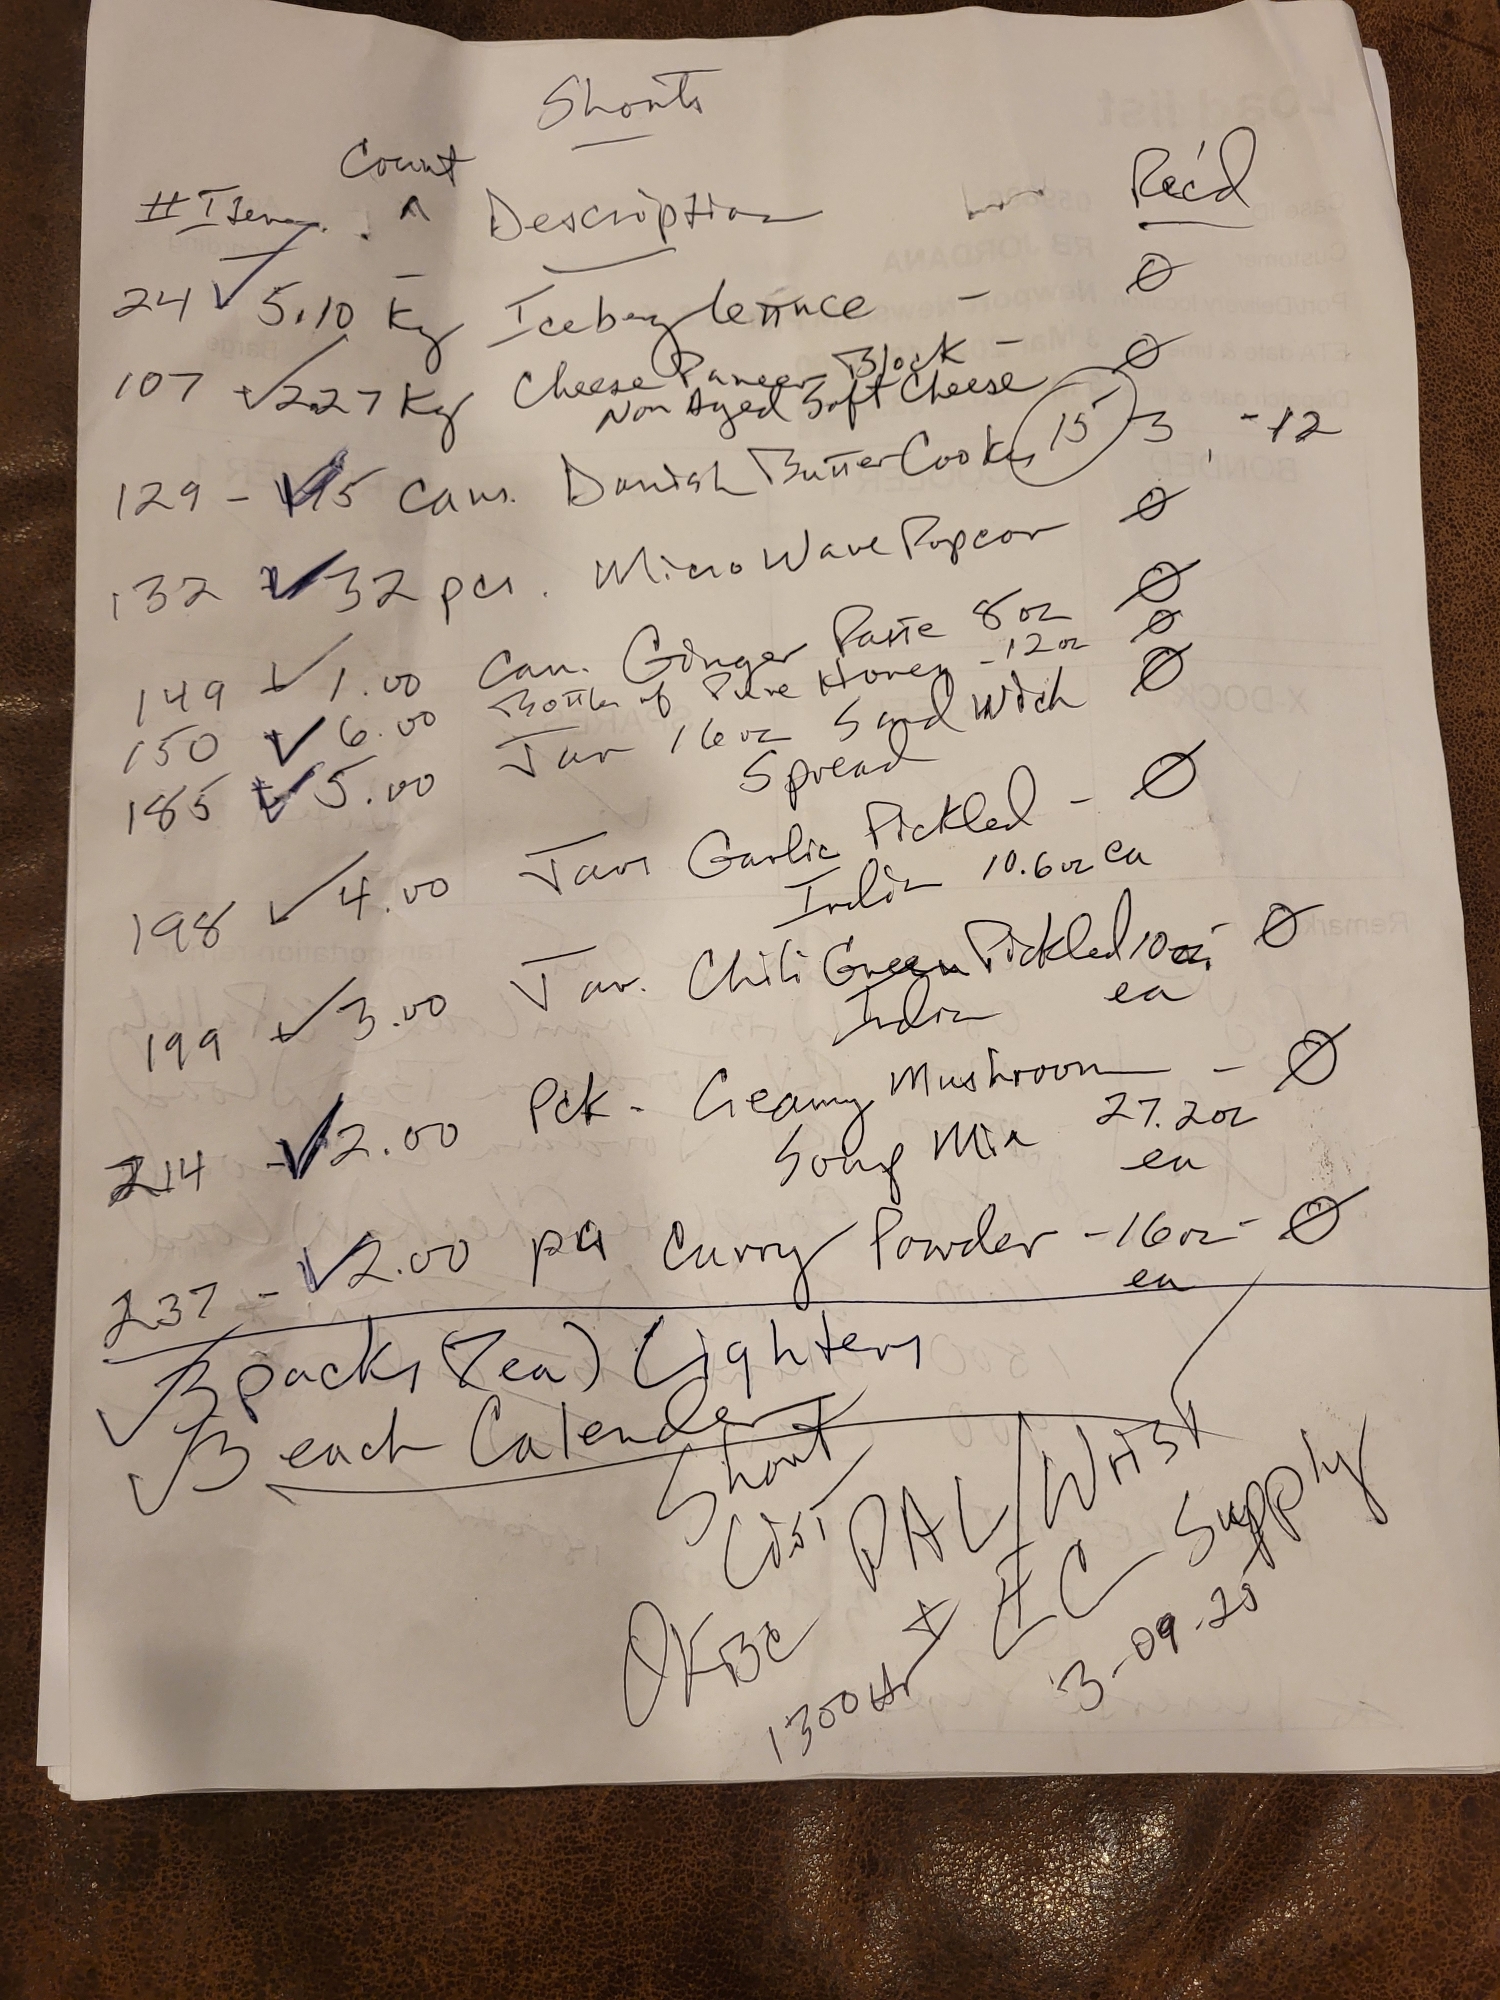 Shorts
Count
# Item ^ Description Rec'd
24 ✓ 5.10 Kg Iceberg lettuce - Ø
107 ✓ 2.27 Kg Cheese Paneer Block - Ø
Non Aged Soft Cheese
129 - ✓ 15 cans. Danish Butter Cooks 15 3, -12
132 ✓ 32 pcs. MicroWave Popcorn Ø
149 ✓ 1.00 can. Ginger Paste 8 oz Ø
150 ✓ 6.00 Bottles of Pure Honey - 12 oz Ø
185 ✓ 5.00 Jar 16 oz Sandwich Ø
Spread
198 ✓ 4.00 Jars Garlic Pickled - Ø
India 10.6 oz ea
199 ✓ 3.00 Jar. Chili Green Pickled 10 oz - Ø
India ea
214 - ✓ 2.00 Pck - Creamy Mushroom - Ø
Soup Mix 27.2 oz
ea
237 - ✓ 2.00 pcs Curry Powder - 16 oz - Ø
ea
✓ 3 packs (7ea) Lighters
✓ 3 each Calender
Short
List PAL/Wrist
OKBC & EC Supply
1300 Hr 3-09-20
Load list
RB JORDANA
Customer
BONDED
X-DOCK